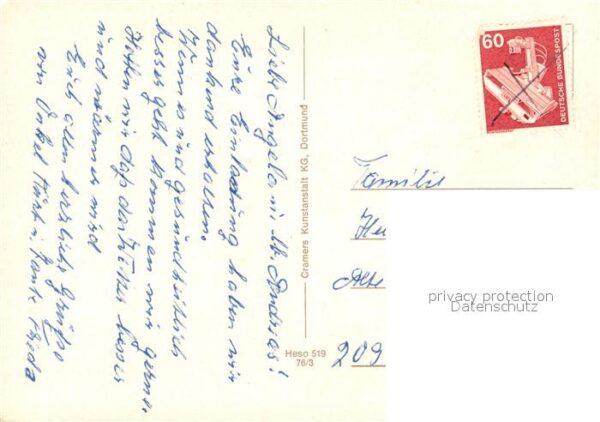 Liebe Angela u. lb. Andrias!
Eure Einladung haben wir
dankend erhalten.
Wenn es uns gesundheitlich
besser geht kommen wir gerne.
Hoffen wir daß das Wetter besser
und wärmer wird
Euch allen herzliche Grüße
von Onkel Kurt u. Tante Frieda
Cramers Kunstanstalt KG, Dortmund
Heso 519
76/3
60
DEUTSCHE BUNDESPOST
Familie
He
Alte
209
privacy protection
Datenschutz